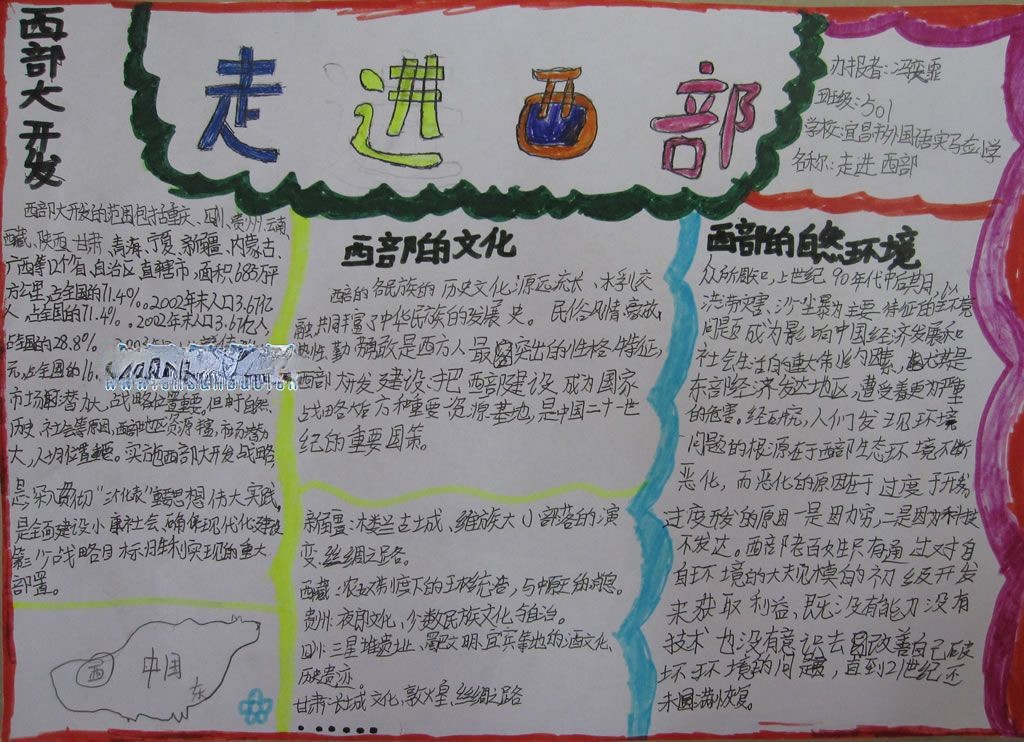 走进西部
办报者:冯奕霏
班级:501
学校:宜昌市外国语实马金小学
名称:走进西部
西部大开发
西部大开发的范围包括重庆、四川、贵州、云南、
西藏、陕西、甘肃、青海、宁夏、新疆、内蒙古、
广西等12个省、自治区、直辖市,面积685万平
方公里,占全国的71.4%。2002年末人口3.67亿
人,占全国的71.4%。2002年末人口3.67亿人,
占全国的28.8%
元,占全国的16.
市场潜力大,战略位置重要。但由于自然、
历史、社会等原因,西部地区资源丰富,市场潜力
大,战略位置重要。实施西部大开发战略,
思想伟大实践,
是全面建设小康社会,确保现代化建设
第三步战略目标胜利实现的重大
部署。
西
中国
东
西部的文化
西部的各民族的历史文化源远流长、水乳交
融,共同丰富了中华民族的发展史。民俗风情豪放、
热性、勤勇敢是西方人最突出的性格特征,
西部大开发建设:把西部建设成为国家
战略大后方和重要资源基地,是中国二十一世
纪的重要国策。
新疆:楼兰古城、维族大小部落的演
变.丝绸之路。
西藏:农奴制度下的王权统治、与中原的
贵州:夜郎文化、少数民族文化与自治。
四川:三星堆遗址、蜀文明、宜宾等地的酒文化、
历史遗迹。
甘肃:长城文化、敦火星、丝绸之路
西部的自然环境
众所周知,上世纪90年代中后期,以
洪涝灾害、沙尘暴为主要特征的环境
问题成为影响中国经济发展和
社会生活的重大制约因素,尤其是
东部经济发达地区,遭受着更为严重
的危害。经研究,人们发现环境
问题的根源在于西部生态环境不断
恶化,而恶化的原因在于过度开发
过度开发的原因一是因为穷,二是因为科技
不发达。西部老百姓只有通过对自
自环境的大规模的初级开发
来获取利益,既没有能力没有
技术也没有意识去改善自己破
坏环境的问题,直到21世纪还
未圆满恢复。